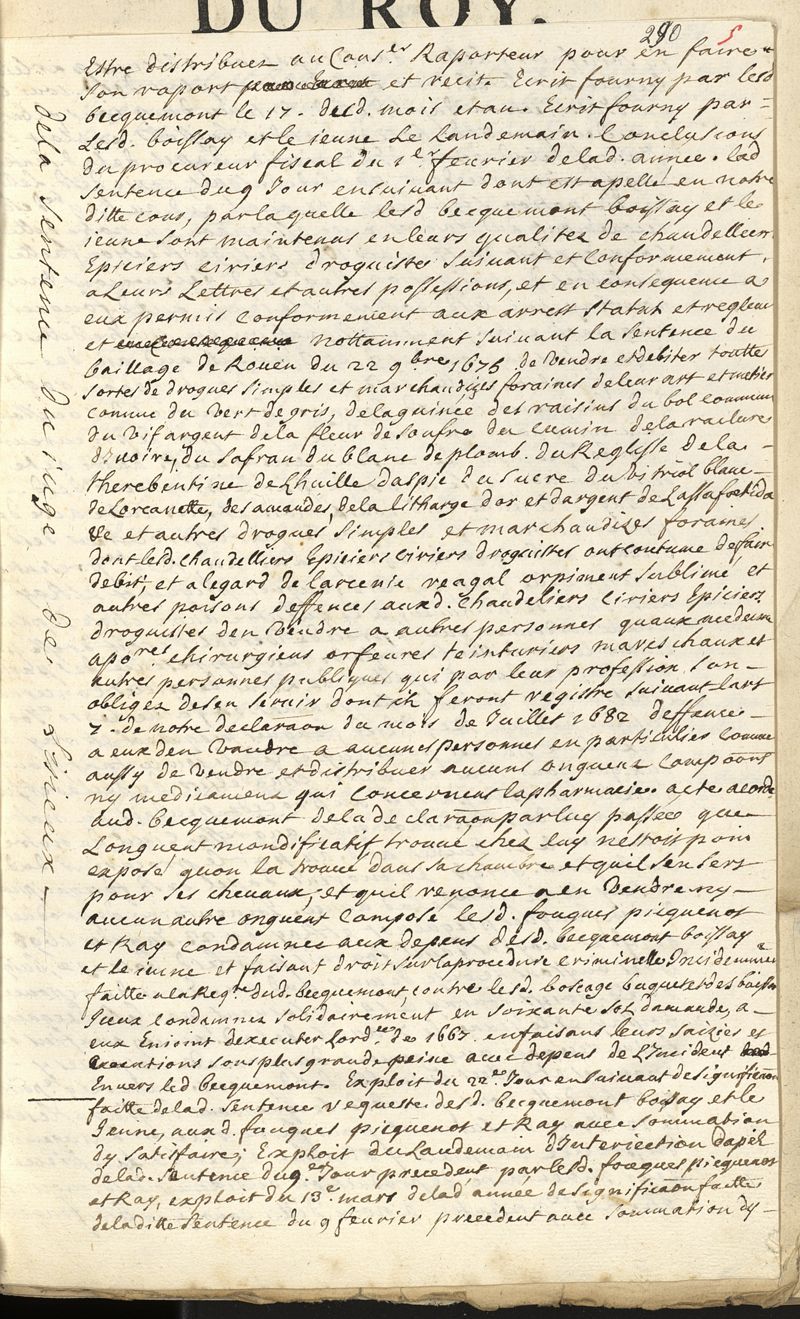 DU ROY.
290 5
Estre distribuez au Cons.er Raporteur pour en faire
son raport et recit. Ecrit fourny par lesd
becquemont le 17. desd. mois et an. Ecrit fourny par=
Lesd. boissay et le ieune Le Landemain. Conclusions
du procureur fiscal du 1er feurier delad. année. lad
sentence du 9 Jour ensuiuant dont est apellé en notre
ditte cour, par laquelle lesd becquemont boissay et le
ieune sont maintenus en leurs qualitez de chandelliers
Epiciers ciriers droguistes suiuant et conformement
a Leurs Lettres et autres possessions, et en consequence a
eux permis conformement aux arrest statuts et reglem
et nottamment suiuant la sentence du
bailliage de Rouen du 22 9bre 1675 de vendre et debiter toutte
sortes de drogues simples et marchandizes foraines de leur art et metier
comme du vert de gris, de la quince des raisins du bol commun
du vif argent de la fleur de soufre du cumin de la raclure
d'Iuoire, du safran du blanc de plomb. du Reglisse de la -
therebentine de L'huille daspic du sucre du vitriol blanc -
de Lorcanette, des amandes, de la litharge dor et dargent de Lassafoetida
&c et autres drogues simples et marchandizes foraines
dont lesd. chandelliers Epiciers ciriers droguistes ont coutume de faire
debit, et a legard de larcenic reagal orpiment sublimé et
autres poisons deffences auxd. chandeliers ciriers Epiciers
droguistes den vendre a autres personnes quaux medecins
apo.res chirurgiens orfeures teinturiers mareschaux et
autres personnes publiques qui par leur profession sont
obligez de sen seruir dont ils feront registre suiuant lart
7. de notre declaraon du mois de Juillet 1682 deffence -
a eux den vendre a aucunes personnes en particulier comme
aussy de vendre et distribuer aucuns onguens compoons
ny medicamens qui concernent la pharmacie. acte acordé
aud. becquemont de la declaraon par luy passée que
Longuent mondificatif trouué chez luy nestoit poin
exposé quon la trouué dans sa chambre et quil sen sert
pour ses cheuaux, et quil renonce a en vendre ny -
aucun autre onguent composé lesd. fouques picquenot
et Ray condamnez aux depens desd. becquemont boissay
et le ieune et faisant droit sur la procedure criminelle Incidemmen
faitte a la Reqre dud. becquemont, contre lesd. boscage buquet et des boissay
Iceux condamnez solidairement en soixante sols damande, a -
eux Enioint dexecuter Lord.ce de 1667 en faisans leurs saizies et
executions sous plus grande peine auec depens de L'Incident
Enuers led becquemont. Exploit du 22e Jour ensuiuant de significaon
faitte delad. sentence requeste desd. becquemont boissay et le
Jeune, auxd. fouques picquenot et Ray auec sommation
dy satisfaire; Exploit du Landemain d'Interiection dapel
delad. sentence du 9e Jour precedent par lesd. fouques picquenot
et Ray, exploit du 13e mars delad année de significaon faitte
de la ditte sentence du 9 feurier precedent auec sommation dy -
de la sentence du iuge de Lisieux